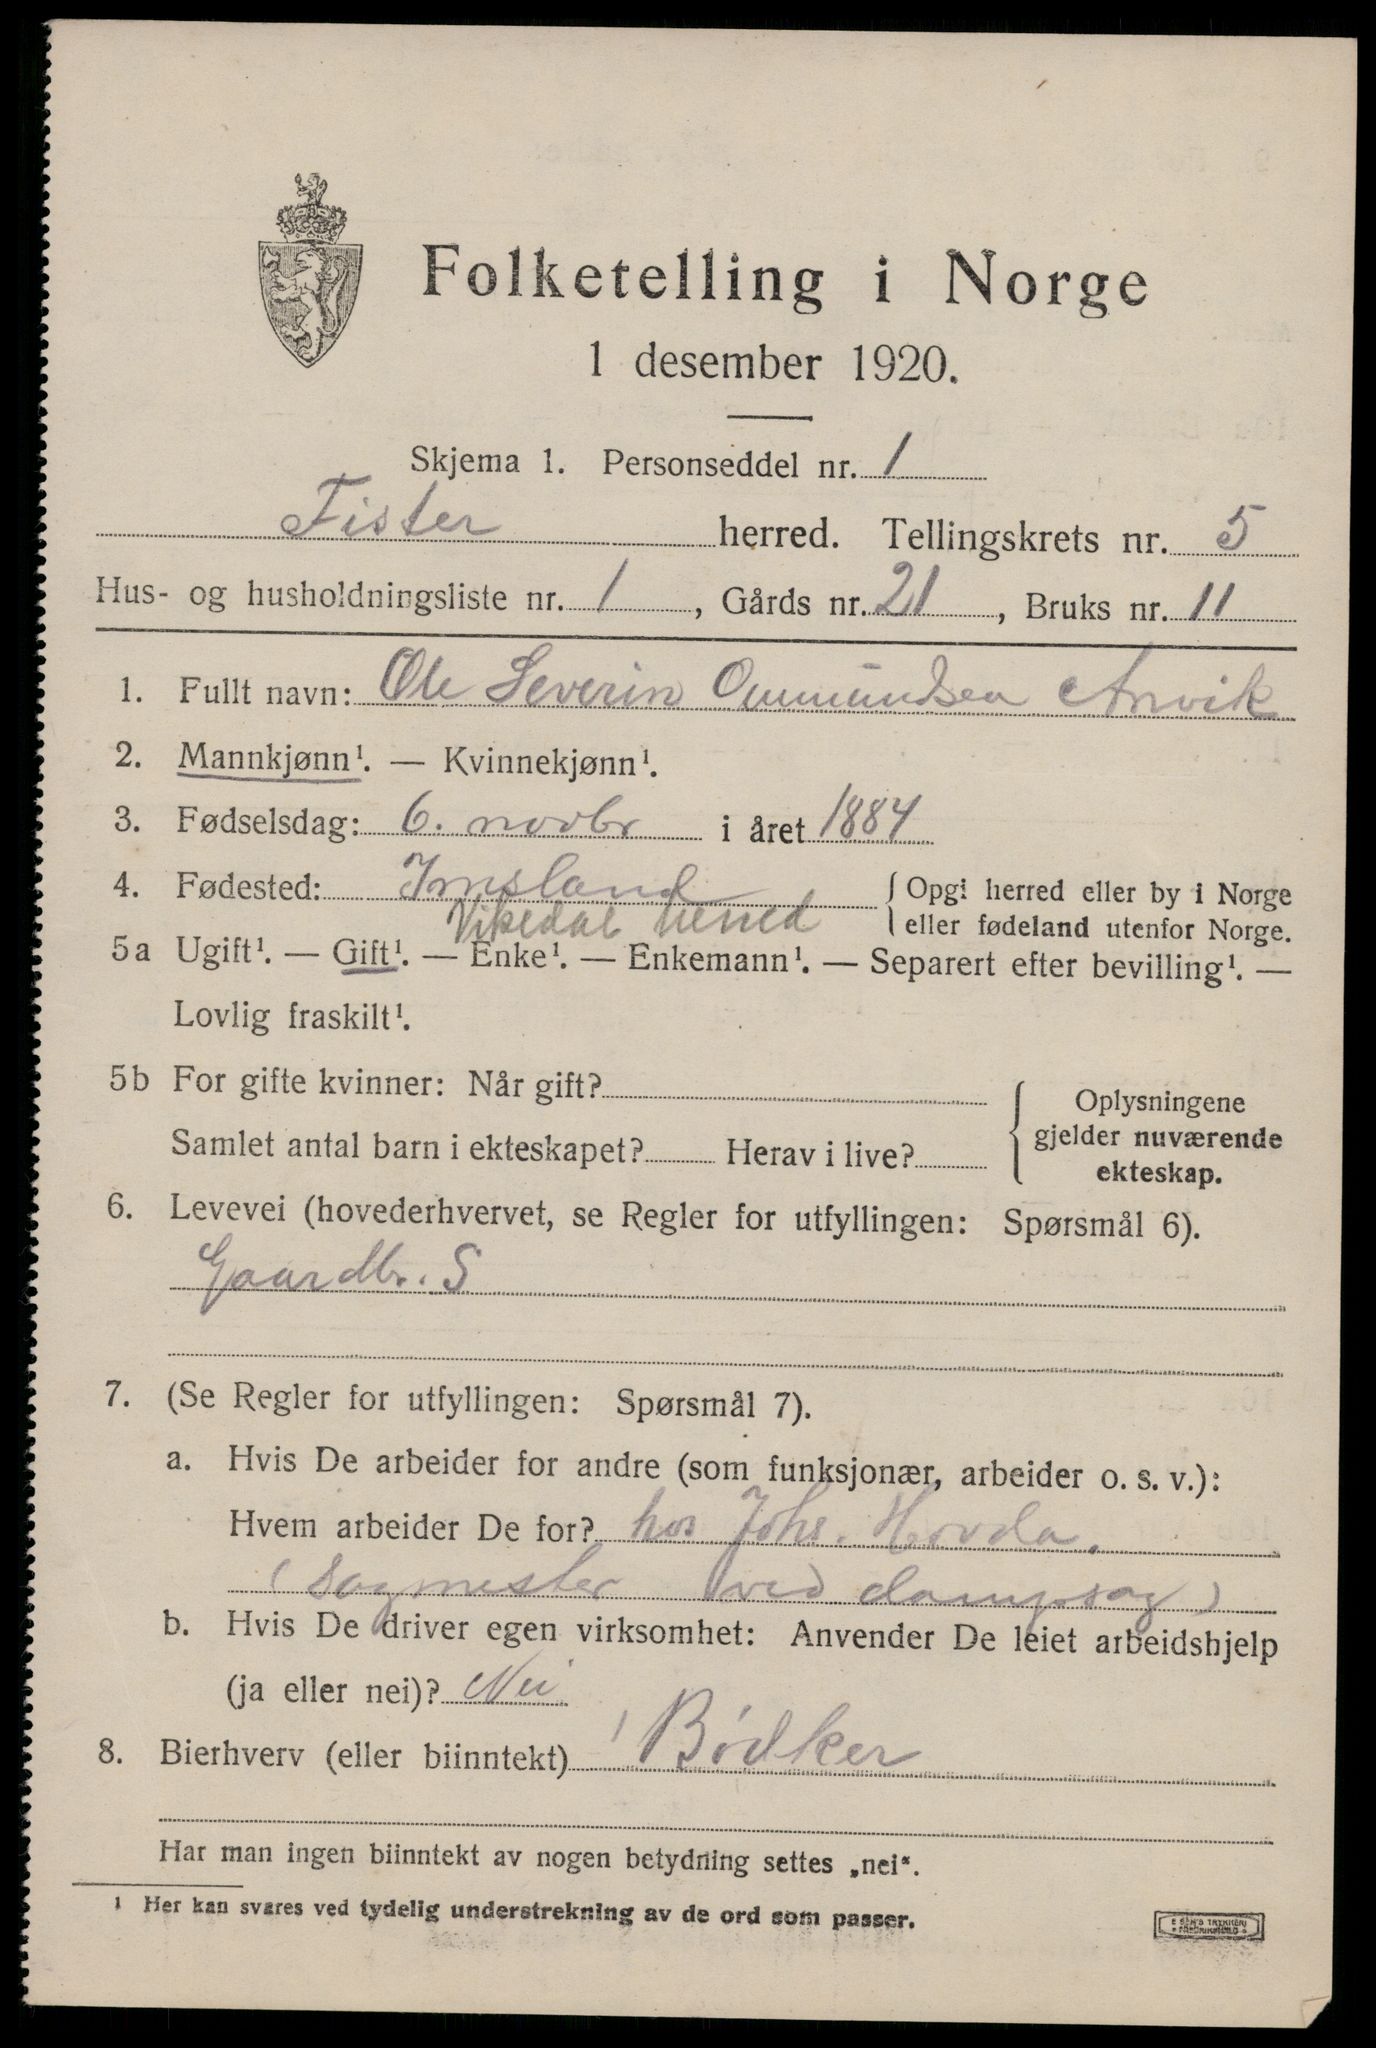 Folketelling i Norge
1 desember 1920.
Skjema 1. Personseddel nr. 1
Fister herred. Tellingskrets nr. 5
Hus- og husholdningsliste nr. 1, Gårds nr. 21, Bruks nr. 11
1. Fullt navn: Ole Severin Ommundsen Anvik
2. Mannkjønn¹. — Kvinnekjønn¹.
3. Fødselsdag: 6. novbr i året 1884
4. Fødested: Imsland { Opgi herred eller by i Norge
Vikedal herred eller fødeland utenfor Norge.
5a Ugift¹. — Gift¹. — Enke¹. — Enkemann¹. — Separert efter bevilling¹. —
Lovlig fraskilt¹.
5b For gifte kvinner: Når gift? { Oplysningene
gjelder nuværende
Samlet antal barn i ekteskapet? Herav i live?
ekteskap.
6. Levevei (hovederhvervet, se Regler for utfyllingen: Spørsmål 6).
Gaardbr. S
7. (Se Regler for utfyllingen: Spørsmål 7).
a. Hvis De arbeider for andre (som funksjonær, arbeider o. s. v.):
Hvem arbeider De for? hos Johs. Hovda.
(Sagmester ved dampsag)
b. Hvis De driver egen virksomhet: Anvender De leiet arbeidshjelp
(ja eller nei)? Nei
8. Bierhverv (eller biinntekt) Bödker
Har man ingen biinntekt av nogen betydning settes „nei“.
¹ Her kan svares ved tydelig understrekning av de ord som passer.